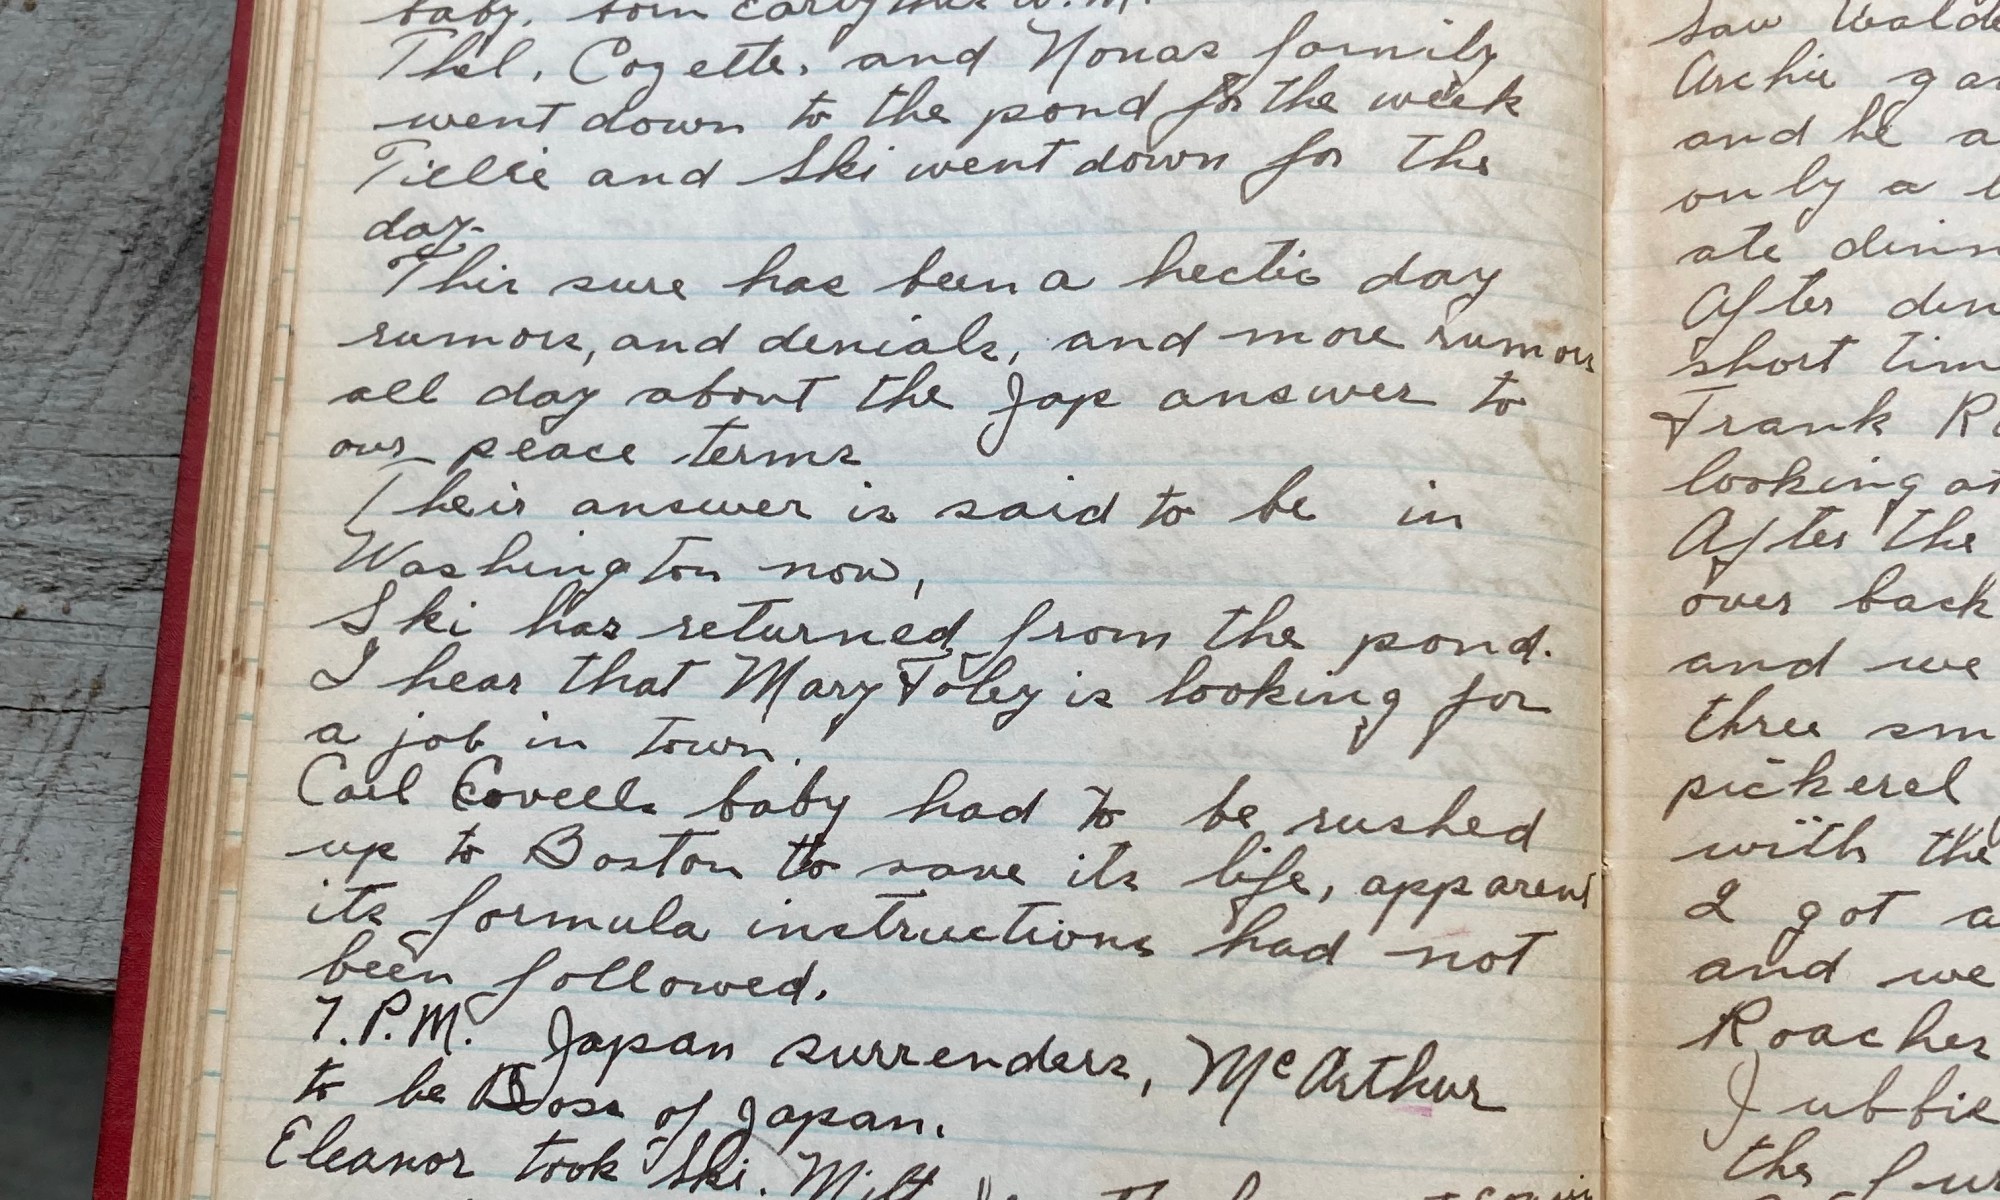 baby. born early this A.M.
Thel, Cozette, and Nonas family
went down to the pond for the week
Tillie and Ski went down for the
day.
This sure has been a hectic day
rumors, and denials, and more rumors
all day about the Jap answer to
our peace terms
Their answer is said to be in
Washington now,
Ski has returned from the pond.
I hear that Mary Foley is looking for
a job in town.
Carl Covells baby had to be rushed
up to Boston to save its life, apparent
its formula instructions had not
been followed.
7. P.M. Japan surrenders, McArthur
to be Boss of Japan.
Eleanor took Ski. Milt
saw
Archie
and he a
only a
ate
After
short
Frank
looking
After the
over back
and we
three
pickerel
with the
I got a
and we
Roaches
Jubbie
the